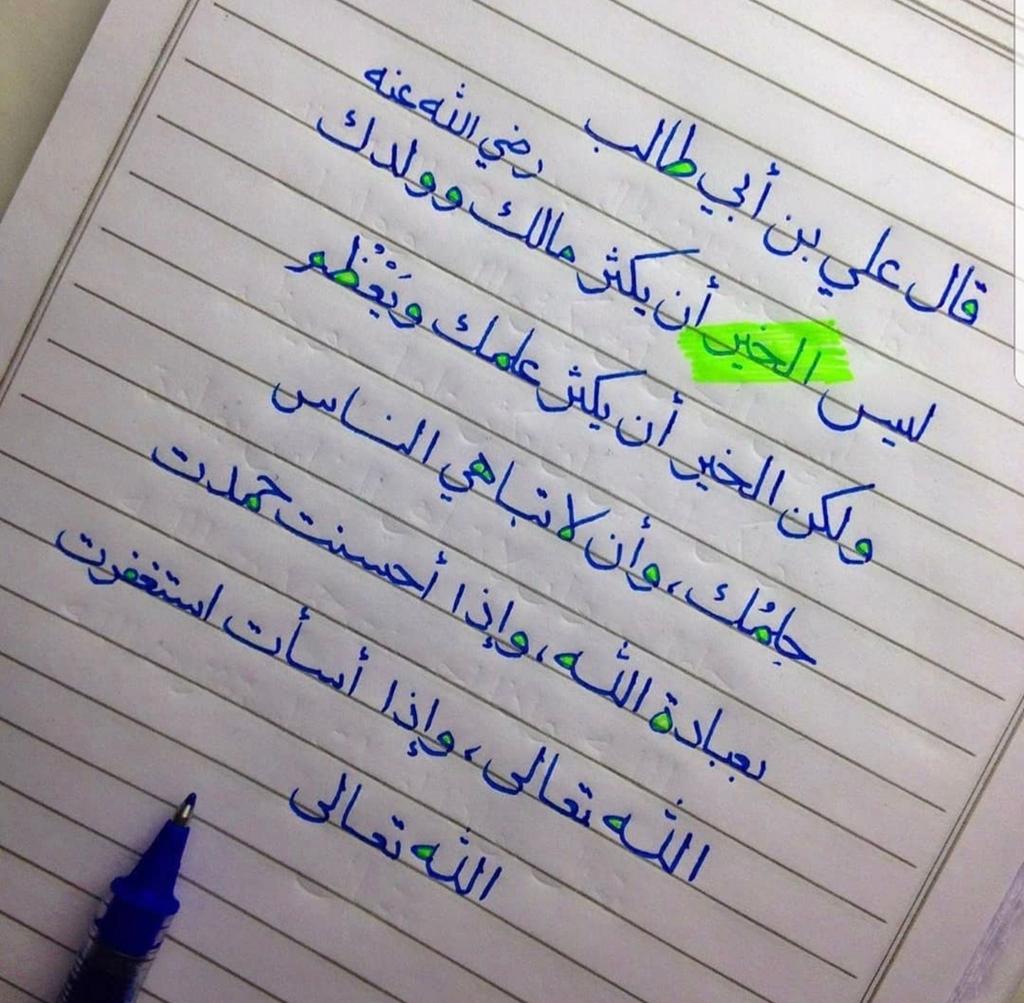 قال علي بن أبي طالب رضي الله عنه
ليس الخير أن يكثر مالك وولدك
ولكن الخير أن يكثر علمك ويَعْظُم
حلمُك، وأن لا تباهي الناس
بعبادة الله، وإذا أحسنت حمدت
الله تعالى، وإذا أسأت استغفرت
الله تعالى